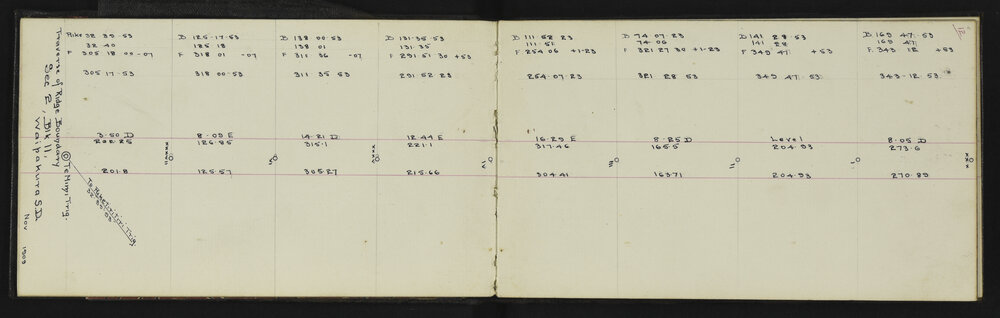 Traverse of Ridge Boundary
Sec 2, Blk 11,
Waipakura S.D.
Nov 1909
Te Mimi Trig.
32 39 53
32 40
F 305 18 00 -07
305 17 53
3-50 D
202.25
201.8
D 125-17-53
125 18
F 318 01 -07
318 00 53
8-09 E
126.85
125.57
D 138 00-53
138 01
F 311 36 -07
311 35 53
14-21 D
315.1
305.27
D 131-35-53
131-35
F 291 51 30 +53
291 52 23
12-44 E
221.1
215.66
IV
D 111 52 23
111-51
F 254 06 +1-23
254-07-23
16-29 E
317.46
304.41
III
D 74 07-23
74 06
F 321 27 30 +1-23
321 28 53
8-25 D
165.5
163.71
II
D 141 28 53
141 28
F 349 47 +53
349 47 53
Level
204.93
204.93
I
D 169 47 53
169 47
F 343 12 +53
343-12-53
8-05 D
273.6
270.89
XXX
12